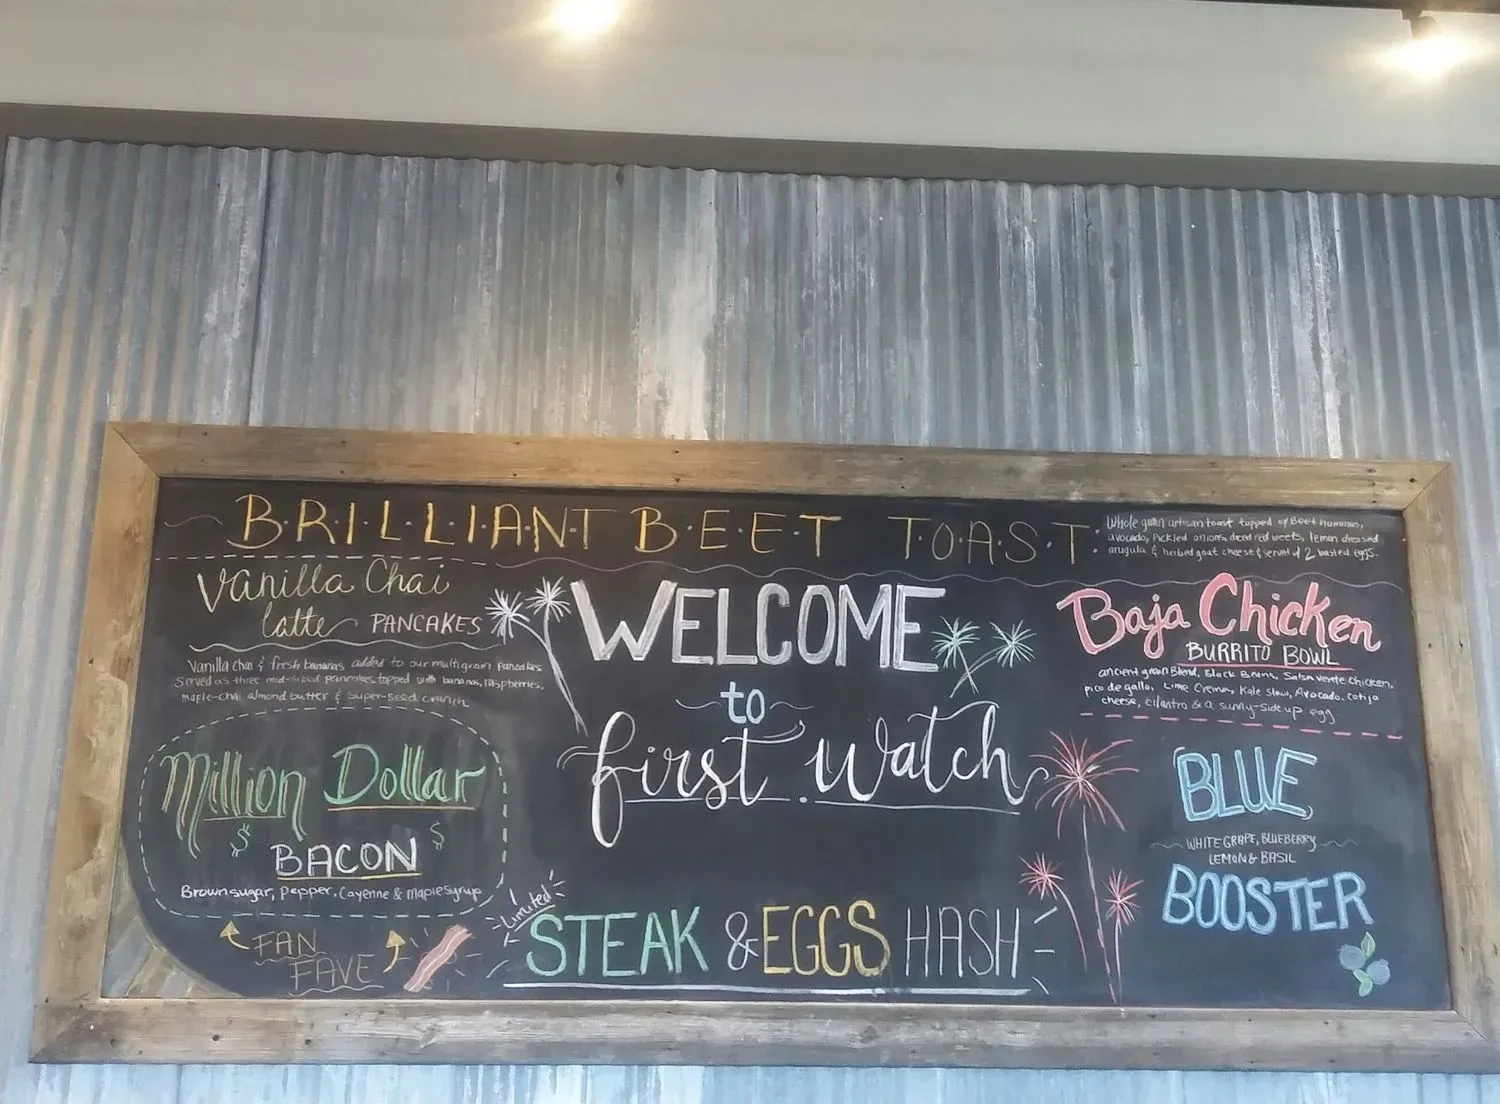 B·R·I·L·L·I·A·N·T B·E·E·T T·O·A·S·T·
Whole grain artisan toast topped w/ Beet hummus,
avocado, Pickled onions, diced red beets, lemon dressed
arugula & herbed goat cheese & served w/ 2 basted eggs.
Vanilla Chai
latte PANCAKES
Vanilla chai & fresh bananas added to our multigrain pancakes
Served as three mid-sized pancakes topped with bananas, raspberries,
maple-chai almond butter & super-seed crunch
Million Dollar
$ $
BACON
Brown sugar, pepper, Cayenne & maple syrup
FAN
FAVE
WELCOME
to
first watch
Limited
STEAK & EGGS HASH
Baja Chicken
BURRITO BOWL
ancient grain Blend, Black Beans, Salsa verde Chicken,
pico de gallo, Lime Crema, Kale Slaw, Avocado, cotija
cheese, cilantro & a sunny-side up egg
BLUE
WHITE GRAPE, BLUEBERRY
LEMON & BASIL
BOOSTER